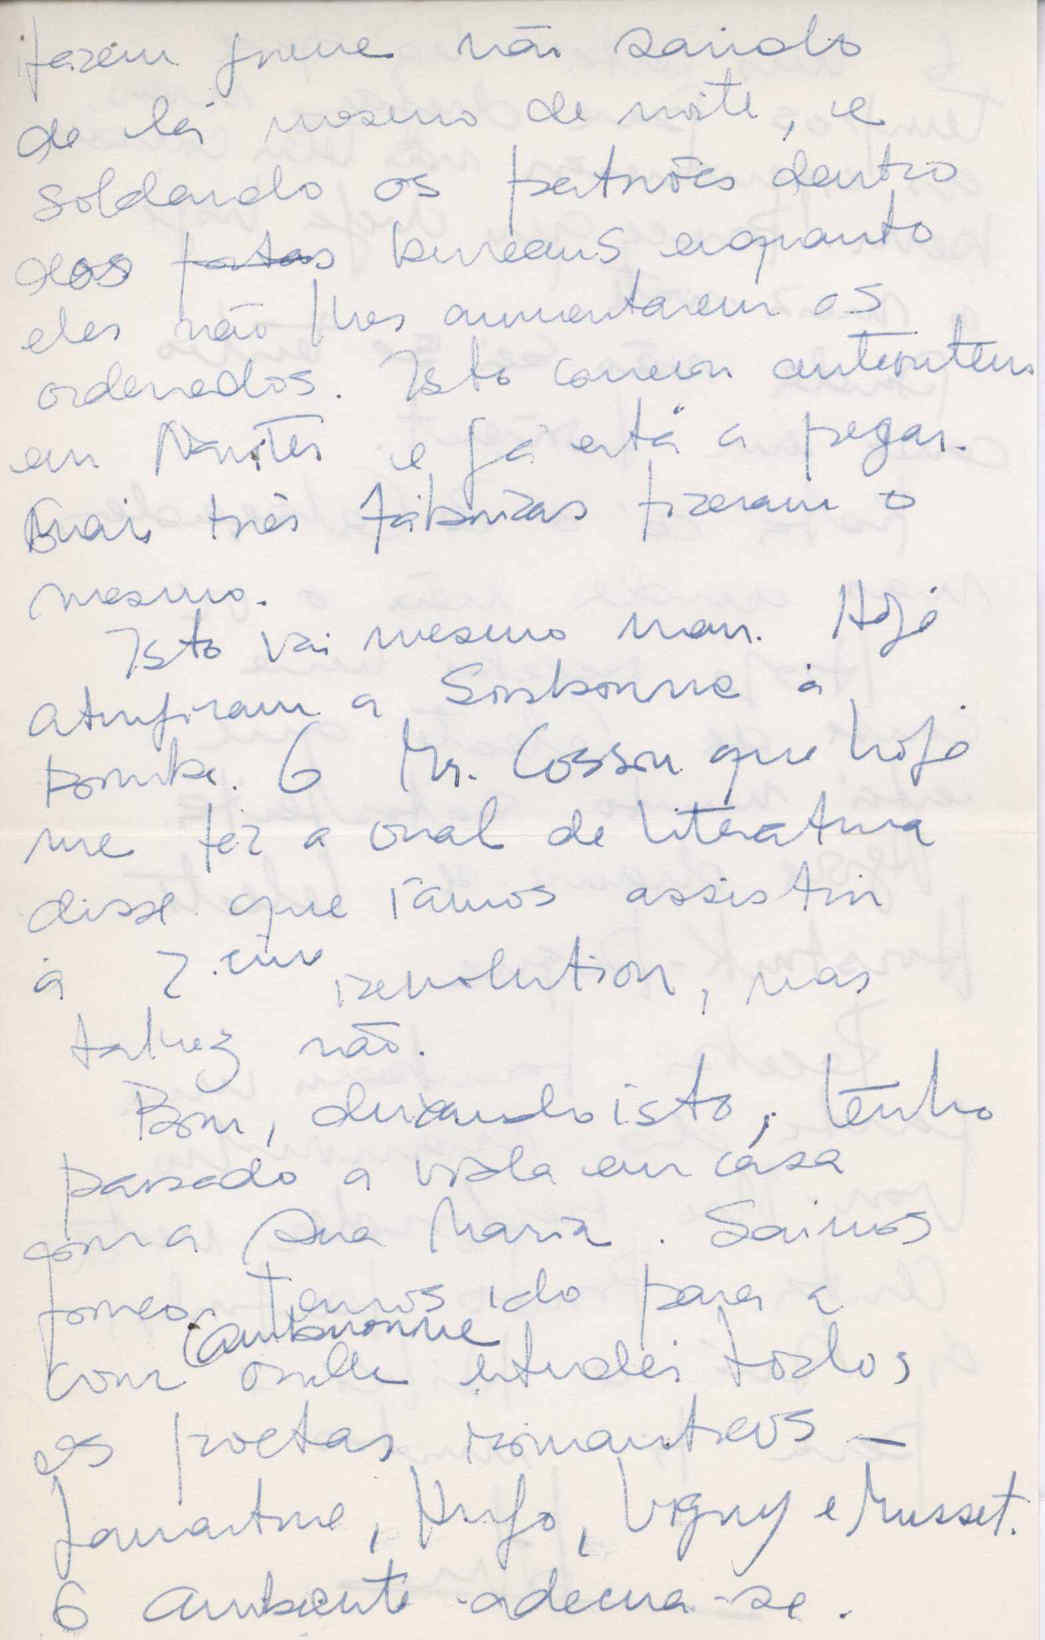 fazem greve não saindo
de lá mesmo de noite, e
soldando os patrões dentro
dos bureaus enquanto
eles não lhes aumentarem os
ordenados. Isto começou anteontem
em Nantes e já está a pegar.
Mais três fábricas fizeram o
mesmo.
Isto vai mesmo mau. Hoje
atingiram a Sorbonne à
bomba. O Mr. Cosson que hoje
me fez a oral de literatura
disse que íamos assistir
à 2.ème revolution, mas
talvez não.
Bom, deixando isto, tenho
passado a vida em casa
com a Ana Maria. Saimos
pouco. Temos ido para a
Cour Cambronne onde estudei todos
os poetas romanticos —
Lamartine, Hugo, Vigny e Musset.
O ambiente adecua-se.